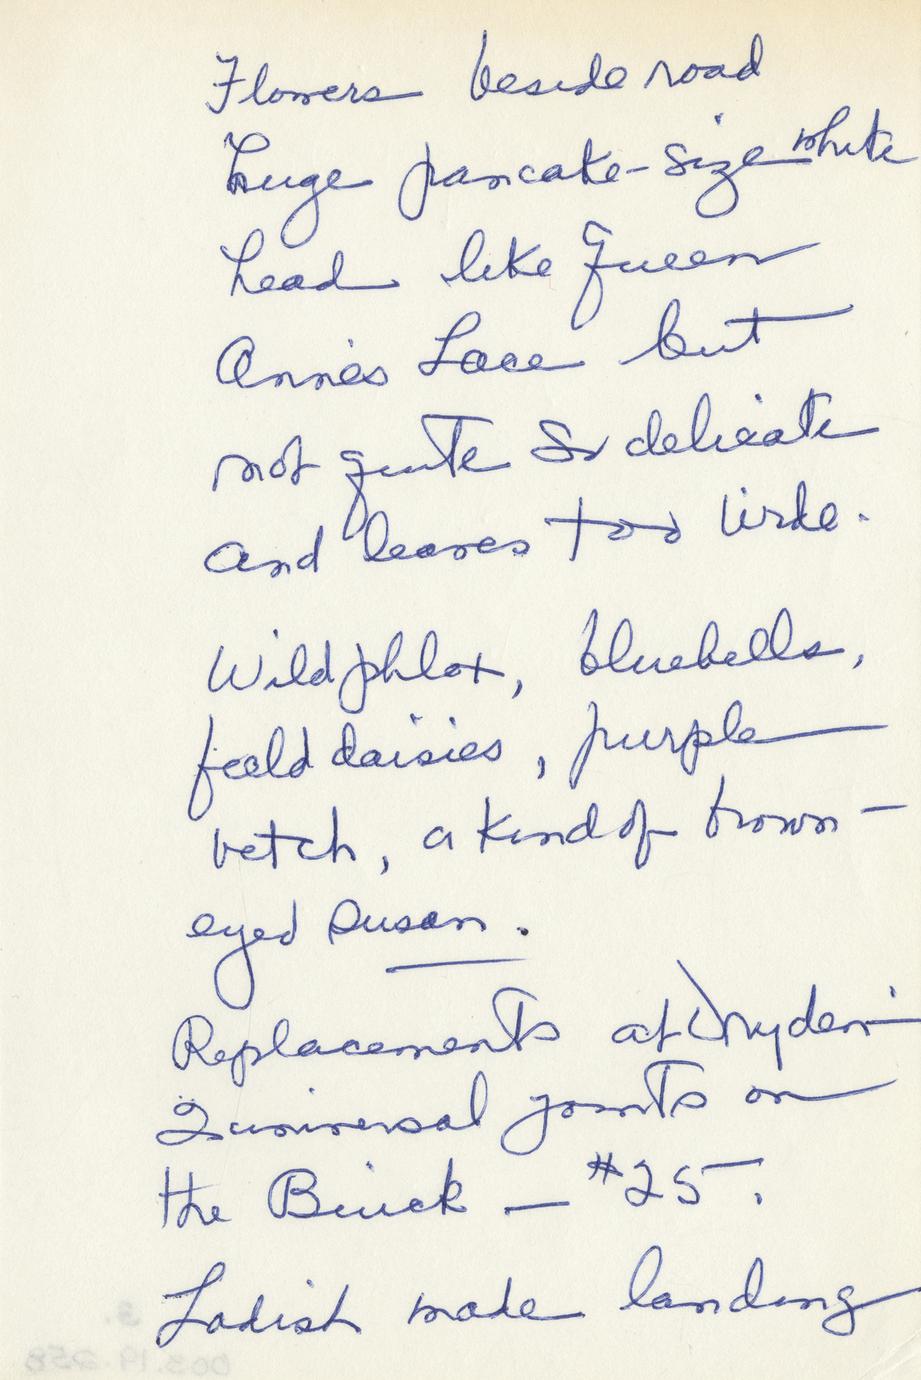 Flowers beside road
huge pancake-size white
head like Queen
Anne's Lace but
not quite so delicate
and leaves too wide.
Wild phlox, bluebells,
field daisies, purple
vetch, a kind of brown-
eyed susan.
Replacements at Dryden-
2 universal joints on
the Buick — #25.
Ladish made landing